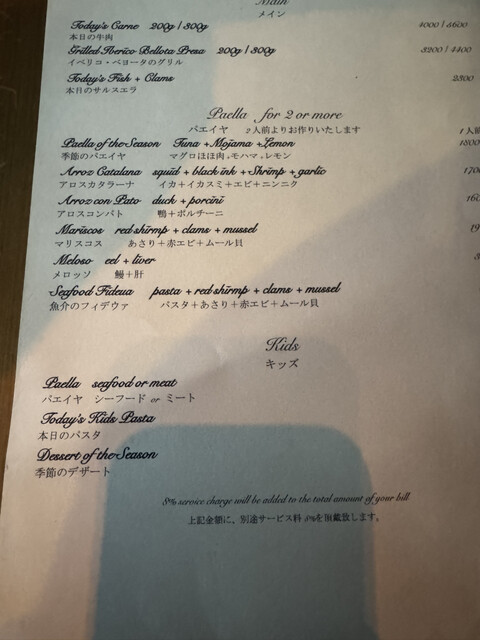 Main
メイン
Today's Carne 200g | 300g 4000 | 5600
本日の牛肉
Grilled Iberico Bellota Presa 200g | 300g 3200 | 4400
イベリコ・ベヨータのグリル
Today's Fish + Clams 2800
本日のサルスエラ
Paella for 2 or more
パエイヤ 2人前よりお作りいたします 1人前
Paella of the Season Tuna + Mojama + Lemon 1800
季節のパエイヤ マグロほほ肉+モハマ+レモン
Arroz Catalana squid + black ink + Shrimp + garlic
アロスカタラーナ イカ+イカスミ+エビ+ニンニク
Arroz con Pato duck + porcini
アロスコンパト 鴨+ポルチーニ
Mariscos red shirmp + clams + mussel
マリスコス あさり+赤エビ+ムール貝
Meloso eel + liver
メロッソ 鰻+肝
Seafood Fideua pasta + red shirmp + clams + mussel
魚介のフィデウァ パスタ+あさり+赤エビ+ムール貝
Kids
キッズ
Paella seafood or meat
パエイヤ シーフード or ミート
Today's Kids Pasta
本日のパスタ
Dessert of the Season
季節のデザート
8% service charge will be added to the total amount of your bill
上記金額に、別途サービス料 8%を頂戴致します。